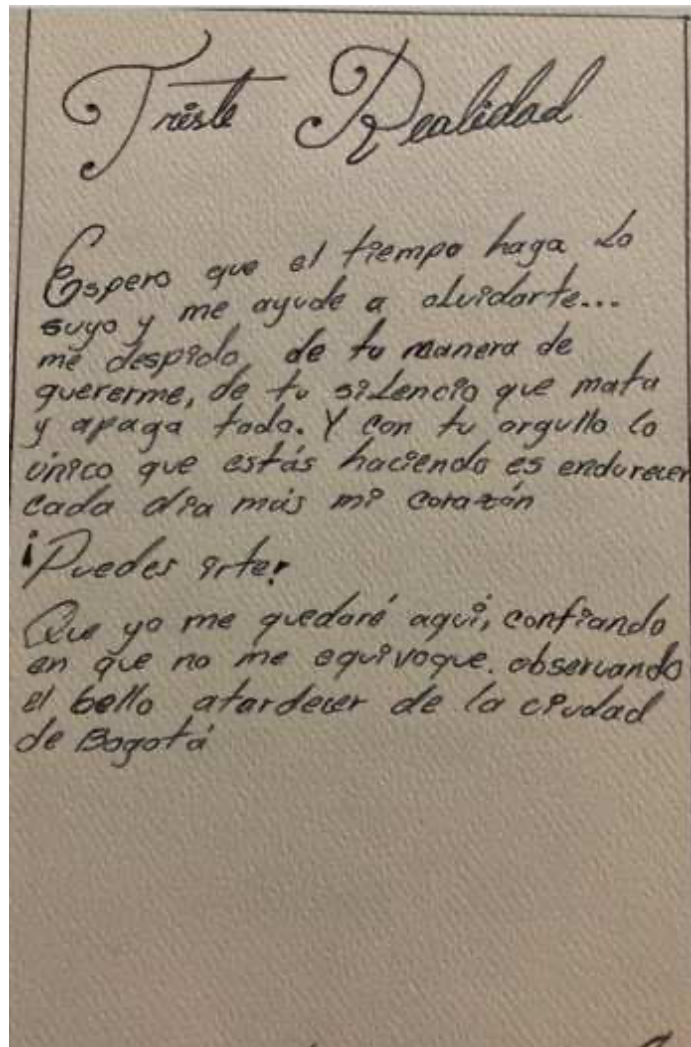 Triste Realidad
Espero que el tiempo haga lo
suyo y me ayude a olvidarte...
me despido, de tu manera de
quererme, de tu silencio que mata
y apaga todo. Y con tu orgullo lo
único que estás haciendo es endurecer
cada día más mi corazón
¡Puedes irte!
Que yo me quedaré aquí, confiando
en que no me equivoque. observando
el bello atardecer de la ciudad
de Bogotá